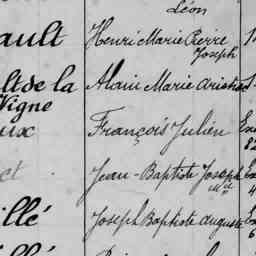 Léon
ault Henri Marie Pierre
Joseph
lt de la Alain Marie
Vigne
ux François Julien
ct Jean-Baptiste Joseph
Mie
illé Joseph Baptiste Auguste